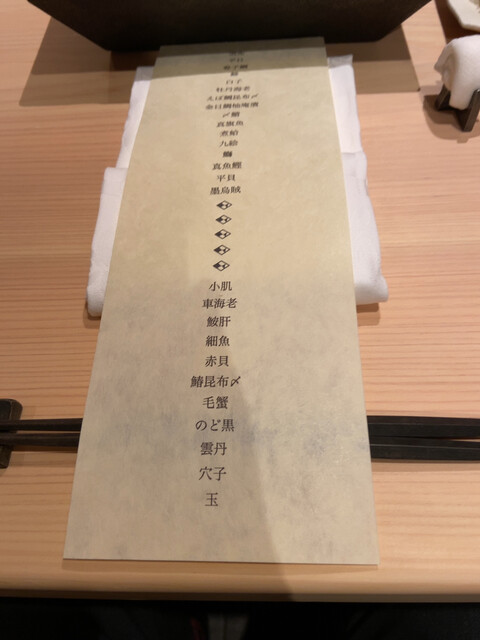 白子
牡丹海老
えぼ鯛昆布〆
金目鯛柚庵漬
〆鯖
真旗魚
煮蛤
九絵
鰤
真魚鰹
平貝
墨烏賊
小肌
車海老
鮟肝
細魚
赤貝
鰆昆布〆
毛蟹
のど黒
雲丹
穴子
玉